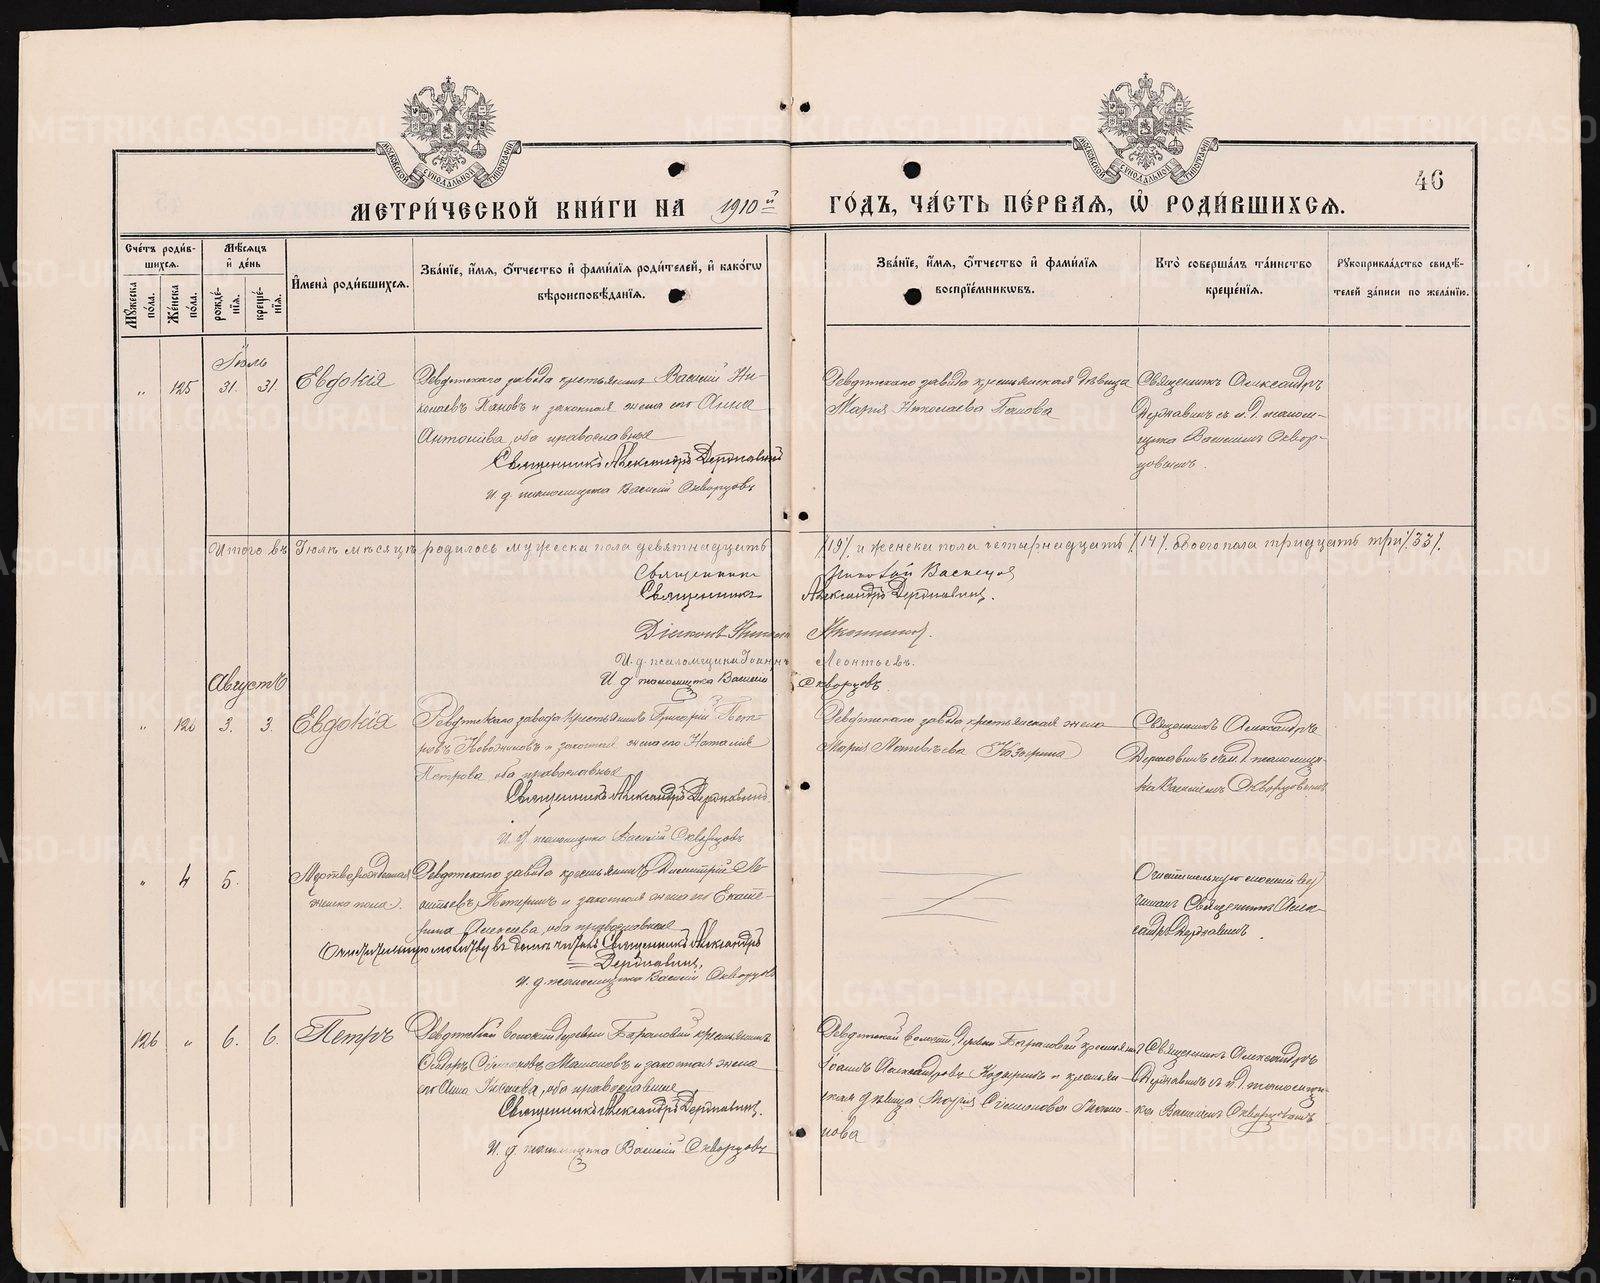 46
МЕТРИ́ЧЕСКОЙ КНИ́ГИ НА 1910й ГО́ДЪ, ЧА́СТЬ ПЕ́РВАЯ, Ѡ РОДИ́ВШИХСЯ.
МОСКОВСКОЙ СѴНОДАЛЬНОЙ ТИПОГРАФІИ
МОСКОВСКОЙ СѴНОДАЛЬНОЙ ТИПОГРАФІИ
Сче́тъ роди́в-
шихся.
Мꙋ́жеска по́ла.
Же́нска по́ла.
Мѣ́сяцъ
и҆ де́нь
рожде́-
нїя.
креще́-
нїя.
И҆мена̀ роди́вшихся.
Зва́нїе, и҆́мя, ѻ҆́тчество и҆ фами́лїя роди́телей, и҆ како́гѡ
вѣроисповѣ́данїя.
Зва́нїе, и҆́мя, ѻ҆́тчество и҆ фами́лїя
воспрїе́мникѡвъ.
Кто̀ соверша́лъ та́инство
креще́нїя.
Рꙋкоприкла́дство свидѣ́-
телей за́писи по жела́нїю.
Іюль
„ 125 31. 31. Евдокія
Ревдинскаго завода крестьянинъ Василій Ни-
колаевъ Пановъ и законная жена его Анна
Антоніева, оба православные
Священникъ Александръ Державинъ
И. д. псаломщика Василій Скворцовъ
Ревдинскаго завода крестьянская дѣвица
Марія Николаева Панова
Священникъ Александръ
Державинъ съ и. д. псалом-
щика Василіемъ Сквор-
цовымъ.
Итого въ Іюлѣ мѣсяцѣ родилось мужеска пола девятнадцать /19/. и женска пола четырнадцать /14/. обоего пола тридцать три /33/.
Священникъ
Священникъ Александръ Державинъ.
Діаконъ
И. д. псаломщика Іоаннъ Леонтьевъ.
И. д. псаломщика Василій Скворцовъ
Августъ
„ 126 3. 3. Евдокія
Ревдинскаго завода крестьянинъ Григорій Пет-
ровъ и законная жена его Наталія
Петрова оба православные
Священникъ Александръ Державинъ
И. д. псаломщика Василій Скворцовъ
Ревдинскаго завода крестьянская жена
Марія Матвѣева Козырина
Священникъ Александръ
Державинъ съ и. д. псаломщи-
ка Василіемъ Скворцовымъ
„ 4 5. Мертворожденная
женска пола.
Ревдинскаго завода крестьянинъ Димитрій Ле-
онтьевъ и законная жена его Екате-
рина Алексѣева, оба православные
Очистительную молитву въ домѣ читалъ Священникъ Александръ
Державинъ,
И. д. псаломщика Василій Скворцовъ
Очистительную молитву
читалъ Священникъ Алек-
сандръ Державинъ.
126 „ 6. 6. Петръ
Ревдинской волости деревни Барановой крестьянинъ
Сидоръ Симоновъ Мамоновъ и законная жена
его Анна, оба православные
Священникъ Александръ Державинъ.
И. д. псаломщика Василій Скворцовъ
Ревдинской волости, деревни Барановой крестьянинъ
Іоаннъ Александровъ Козыринъ и крестьян-
ская дѣвица Марія Симонова Мамо-
нова
Священникъ Александръ
Державинъ съ и. д. псаломщи-
ка Василіемъ Скворцовымъ
METRIKI.GASO-URAL.RU